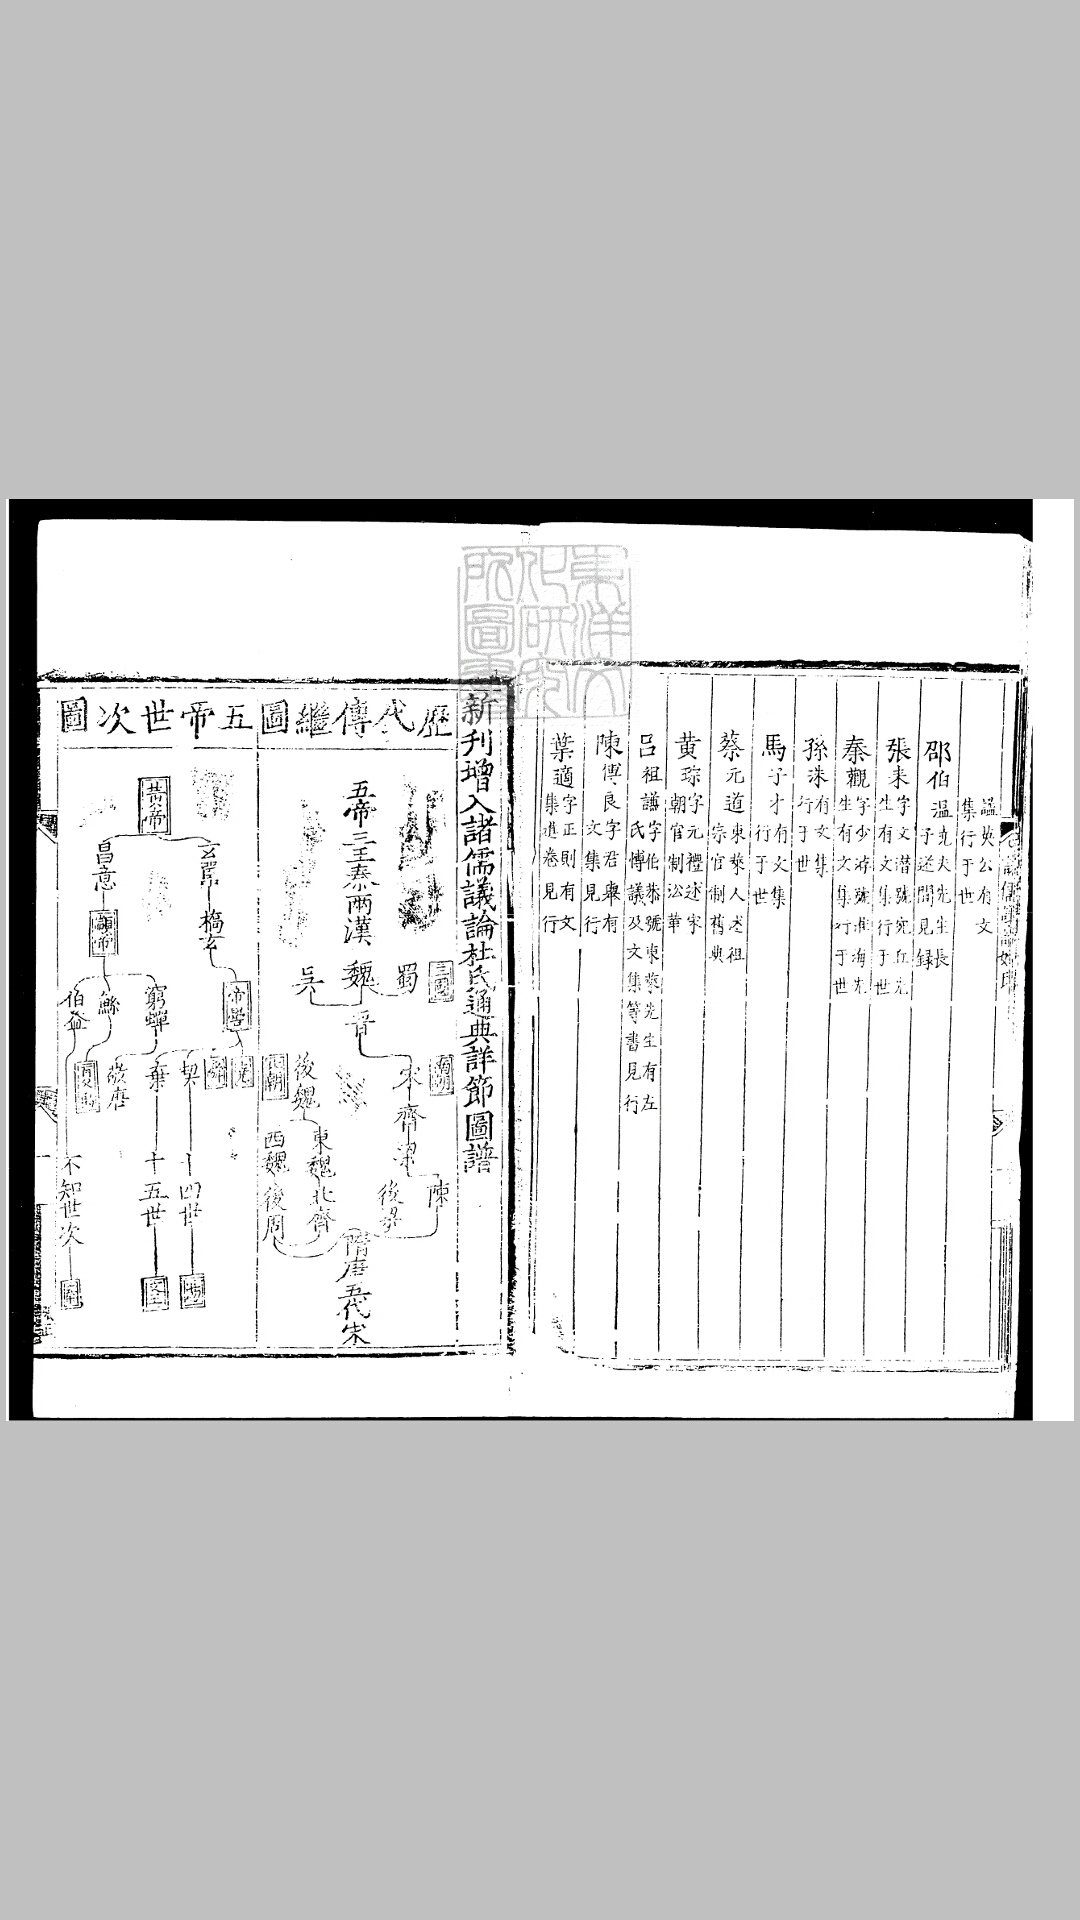 謚英公有文
集行于世
邵伯温
堯夫先生長
子述聞見録
張耒
字文潜號宛丘先
生有文集行于世
秦觀
字少游號淮海先
生有文集行于世
孫洙
有文集
行于世
馬子才
有文集
行于世
蔡元道
東萊人述祖
宗官制舊典
黄琮
字元禮述宋
朝官制沿革
吕祖謙
字伯恭號東萊先生有左
氏博議及文集等書見行
陳傅良
字君舉有
文集見行
葉適
字正則有文
集進卷見行
新刋增入諸儒議論杜氏通典詳節圖譜
歷代傳繼圖
五帝三王秦兩漢
三國
蜀
魏
吳
晉
南朝
宋
齊
梁
陳
後梁
北朝
後魏
東魏
北齊
西魏
後周
隋唐五代宋
五帝世次圖
黃帝
玄囂
橋玄
帝嚳
堯
契
十四世
湯
棄
十五世
文王
昌意
顓帝
窮蟬
敬康
鯀
伯益
不知世次